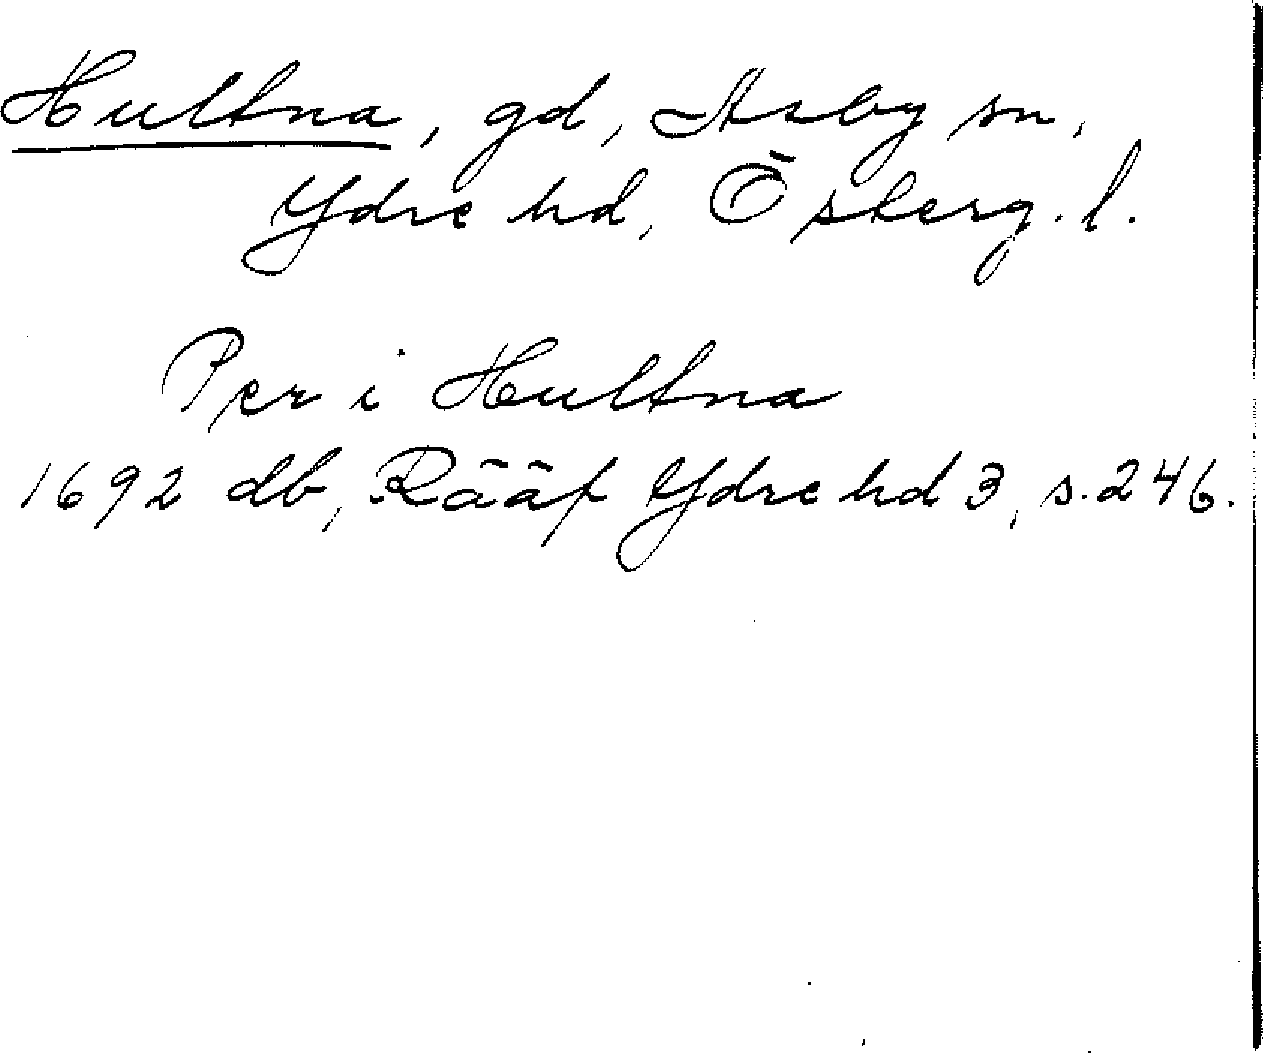 Hultna, gd, Asby sn,
Ydre hd, Österg. l.
Per i Hultna
1692 db, Rääf Ydre hd 3, s. 246.